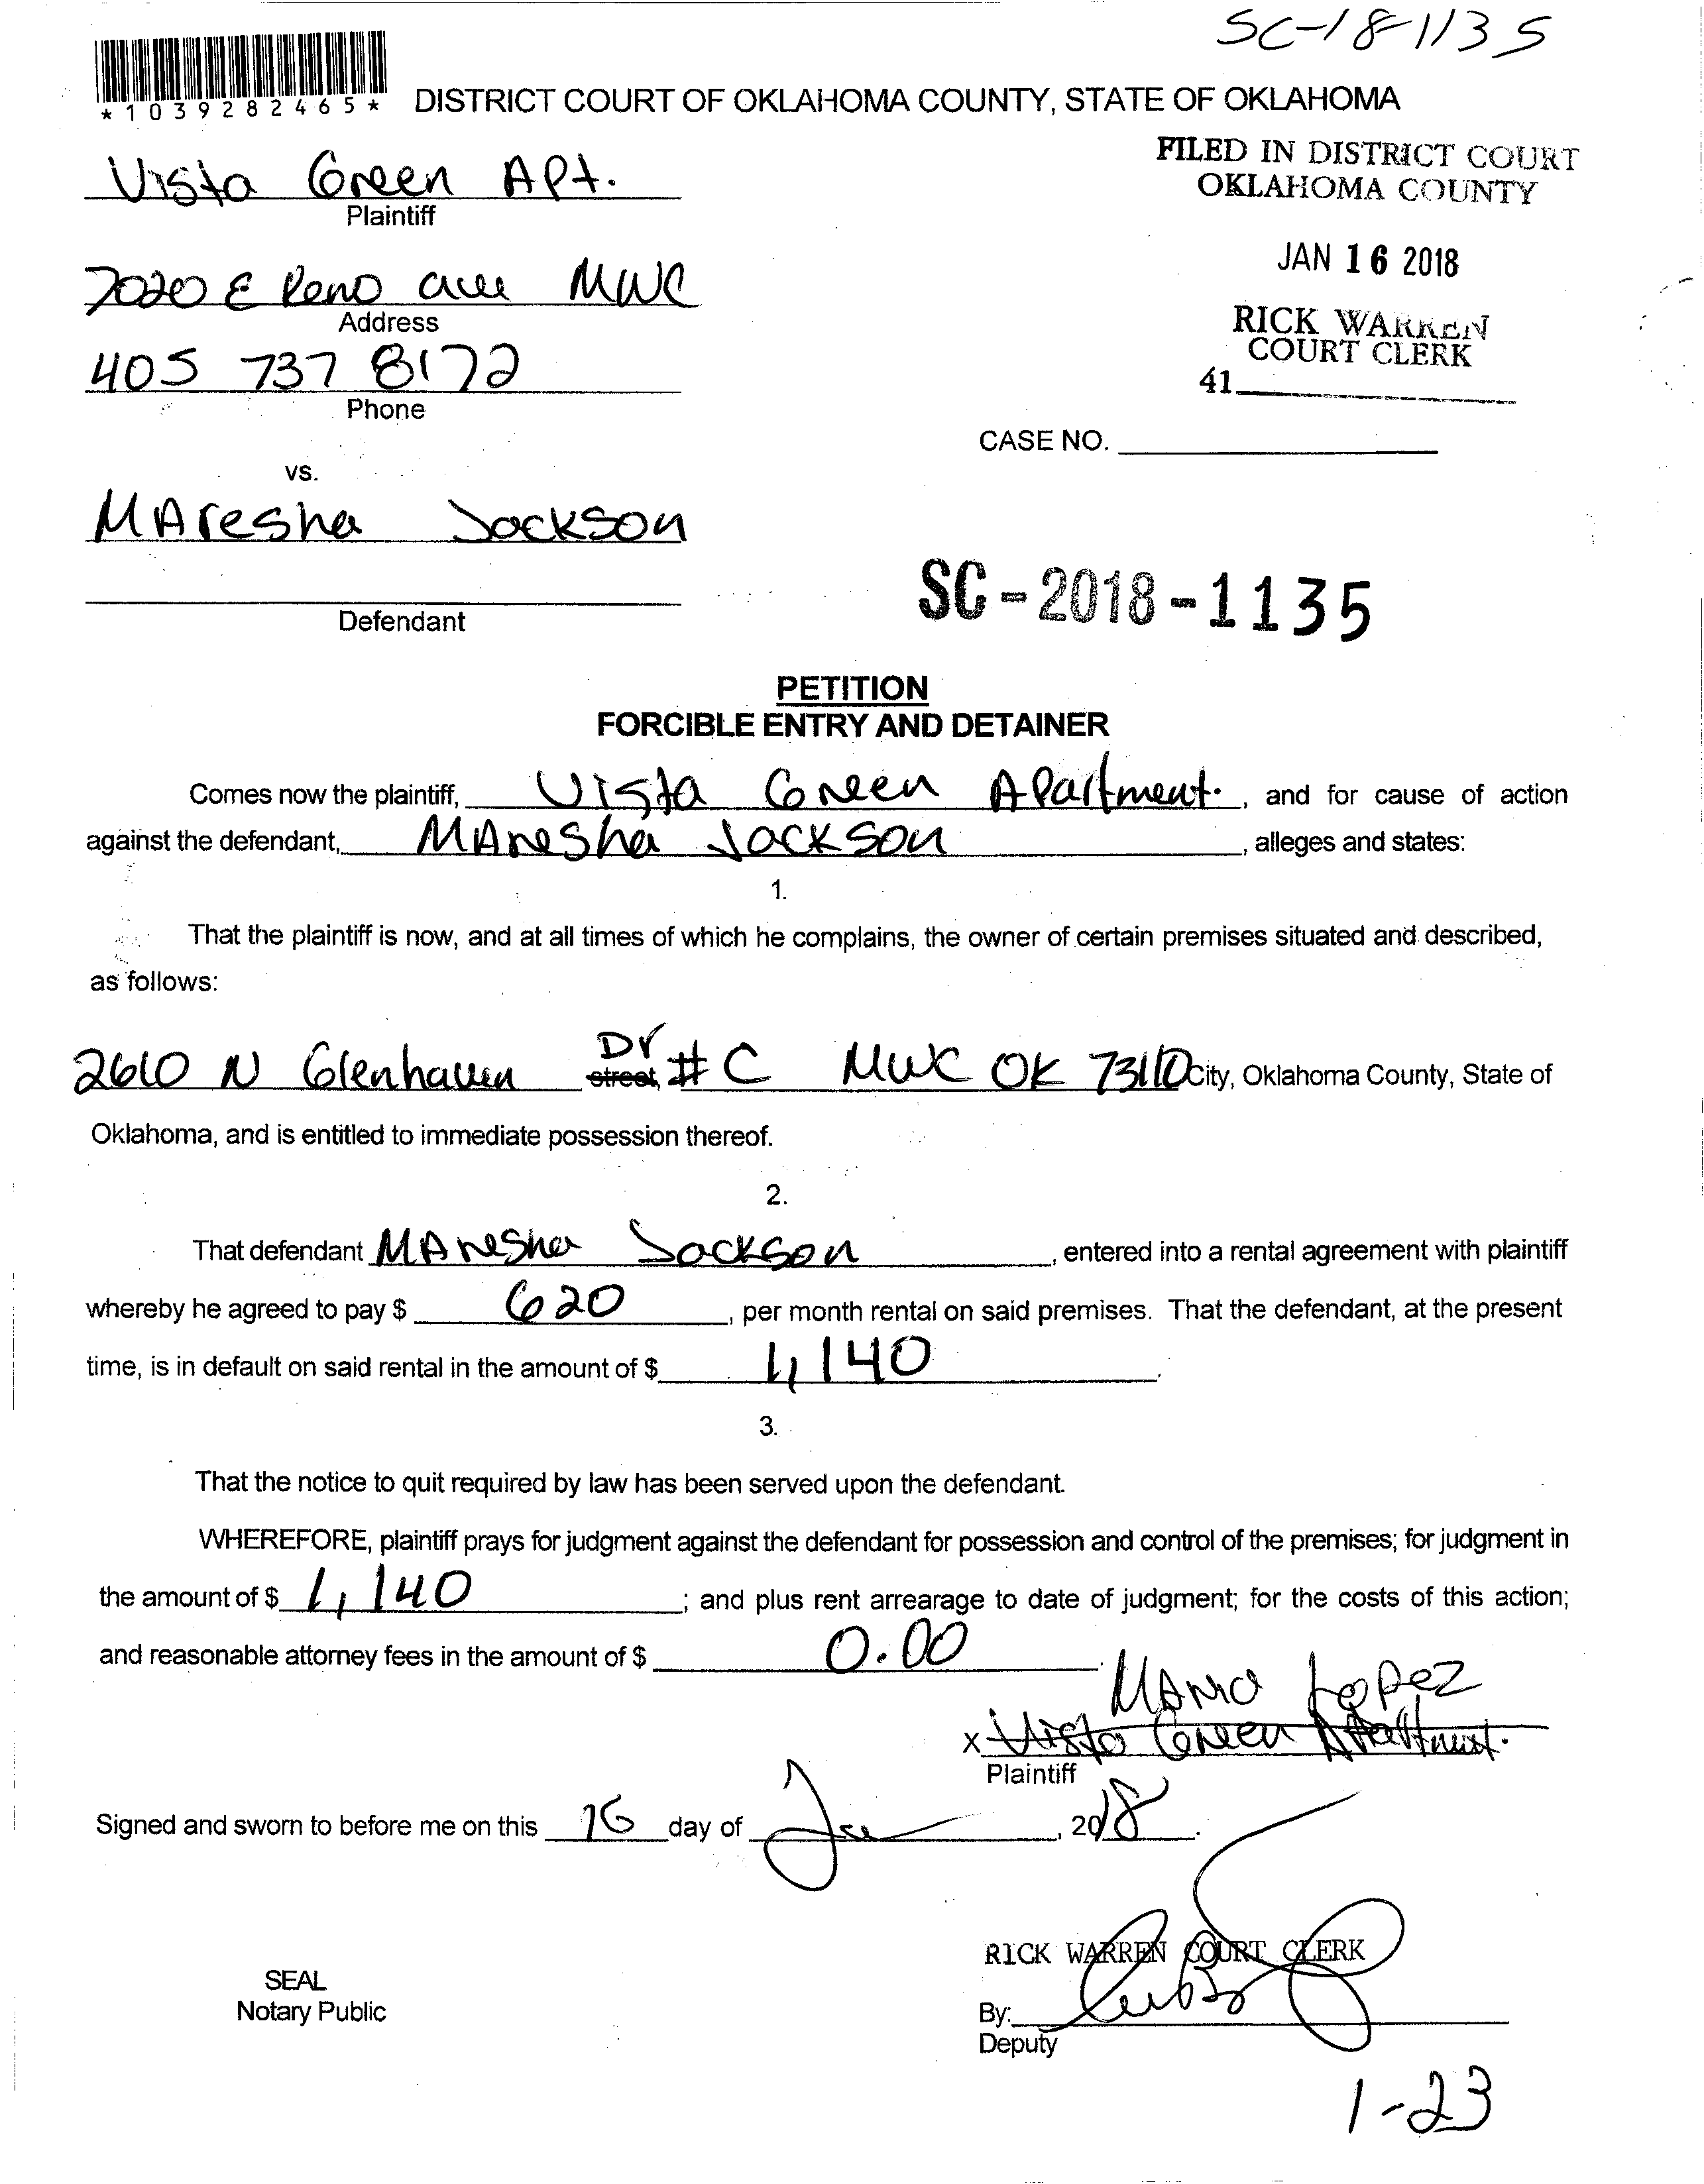 SC-18-1135
*1039282465*
DISTRICT COURT OF OKLAHOMA COUNTY, STATE OF OKLAHOMA
Vista Green Apt.
Plaintiff
FILED IN DISTRICT COURT
OKLAHOMA COUNTY
JAN 16 2018
RICK WARREN
COURT CLERK
41
7020 E Reno ave MWC
Address
405 737 8172
Phone
CASE NO.
vs.
MAresha Jackson
Defendant
SC-2018-1135
PETITION
FORCIBLE ENTRY AND DETAINER
Comes now the plaintiff, Vista Green Apartment. , and for cause of action
against the defendant, MAresha Jackson , alleges and states:
1.
That the plaintiff is now, and at all times of which he complains, the owner of certain premises situated and described,
as follows:
2610 N Glenhaven Dr street, # C MWC OK 73110 City, Oklahoma County, State of
Oklahoma, and is entitled to immediate possession thereof.
2.
That defendant MAresha Jackson , entered into a rental agreement with plaintiff
whereby he agreed to pay $ 620 , per month rental on said premises. That the defendant, at the present
time, is in default on said rental in the amount of $ 1,140 .
3.
That the notice to quit required by law has been served upon the defendant.
WHEREFORE, plaintiff prays for judgment against the defendant for possession and control of the premises; for judgment in
the amount of $ 1,140 ; and plus rent arrearage to date of judgment; for the costs of this action;
and reasonable attorney fees in the amount of $ 0.00 .
Lopez
x Vista Green Apartment.
Plaintiff
Signed and sworn to before me on this 16 day of Jan , 2018 .
RICK WARREN COURT CLERK
SEAL
Notary Public
By:
Deputy
1-23